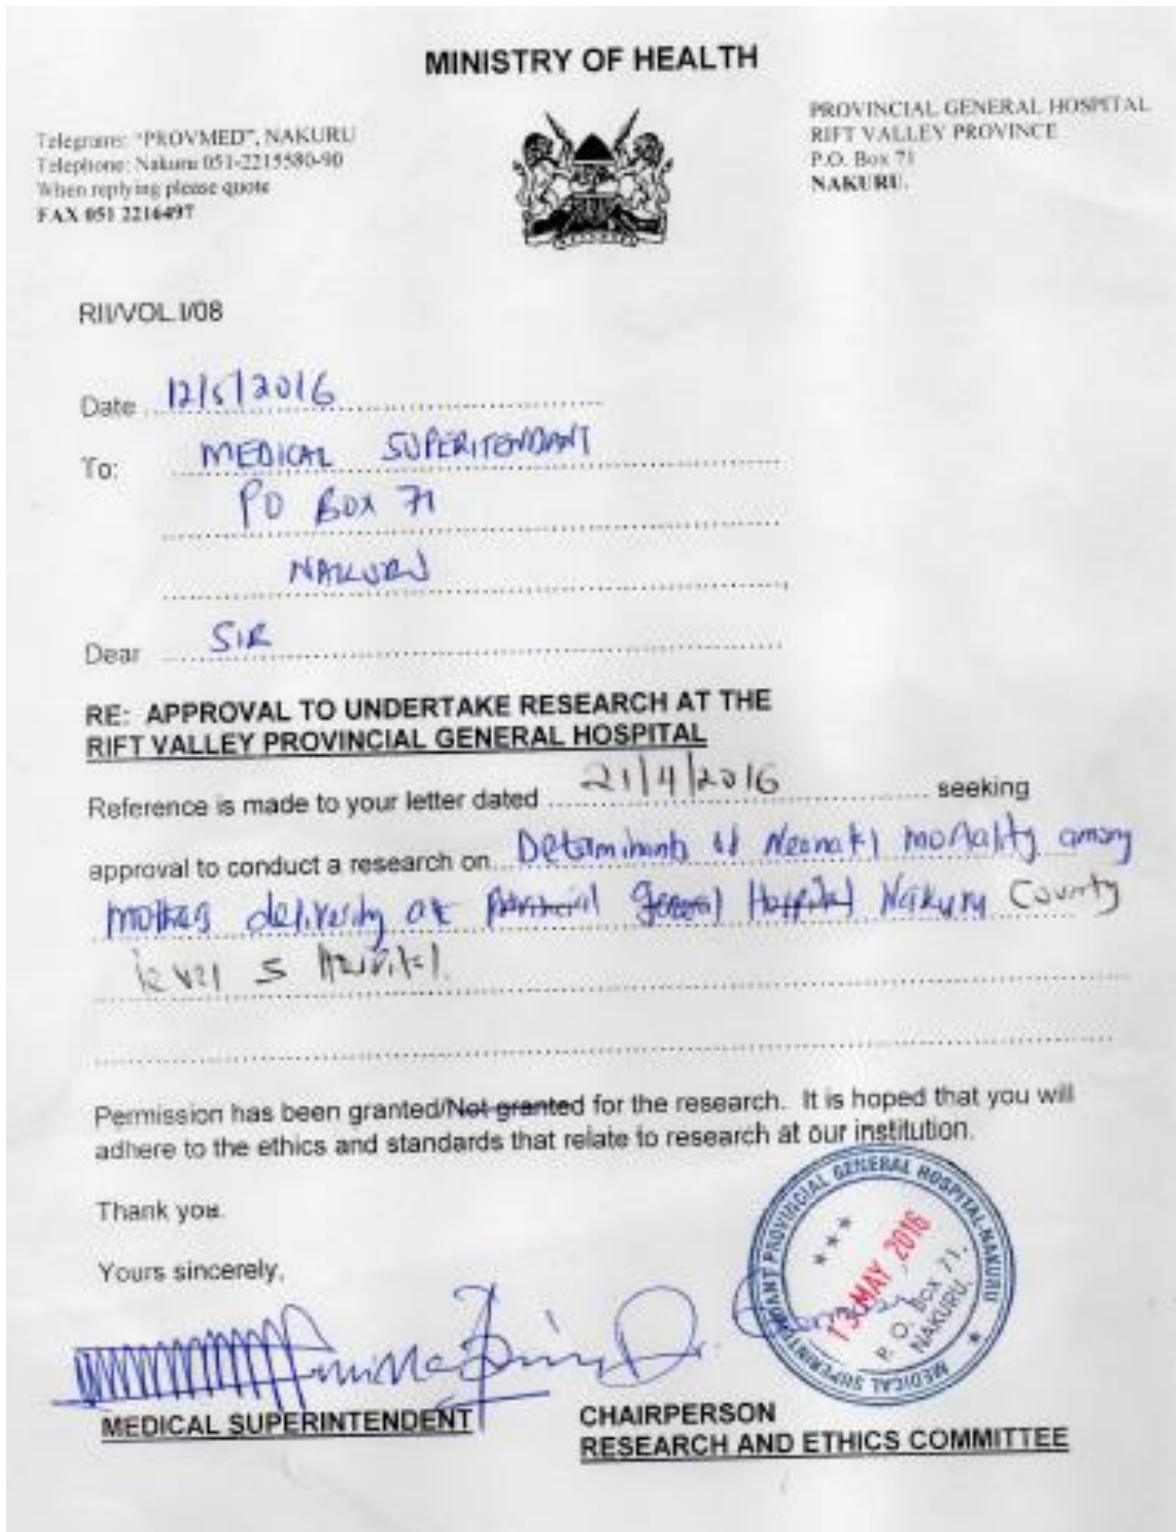 MINISTRY OF HEALTH
Telegrams: "PROVMED", NAKURU
Telephone: Nakuru 051-2215580-90
When replying please quote
FAX 051 2216497
PROVINCIAL GENERAL HOSPITAL
RIFT VALLEY PROVINCE
P.O. Box 71
NAKURU.
RII/VOL.I/08
Date 12/5/2016
To: MEDICAL SUPERITENDANT
PO BOX 71
NAKURU
Dear SIR
RE: APPROVAL TO UNDERTAKE RESEARCH AT THE
RIFT VALLEY PROVINCIAL GENERAL HOSPITAL
Reference is made to your letter dated 21/4/2016 seeking
approval to conduct a research on Determinants of Neonatal mortality among
mothers delivering at Provincial general Hospital Nakuru County
level 5 Hospital.
Permission has been granted/Not granted for the research. It is hoped that you will
adhere to the ethics and standards that relate to research at our institution.
Thank you.
Yours sincerely,
Dr.
MEDICAL SUPERINTENDANT PROVINCIAL GENERAL HOSPITAL-NAKURU
13 MAY 2016
P. O. BOX 71,
NAKURU.
MEDICAL SUPERINTENDENT
CHAIRPERSON
RESEARCH AND ETHICS COMMITTEE